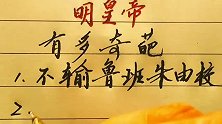 明皇帝
有多奇葩
1.不输鲁班朱由校
2.